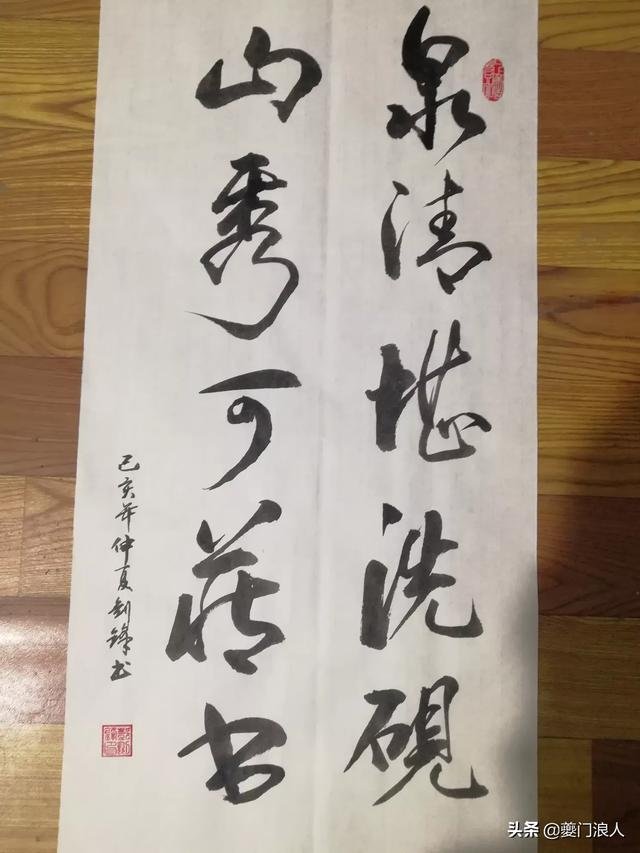 泉清堪洗砚
山秀可藏书
己亥年仲夏剑锋书
头条@夔门浪人